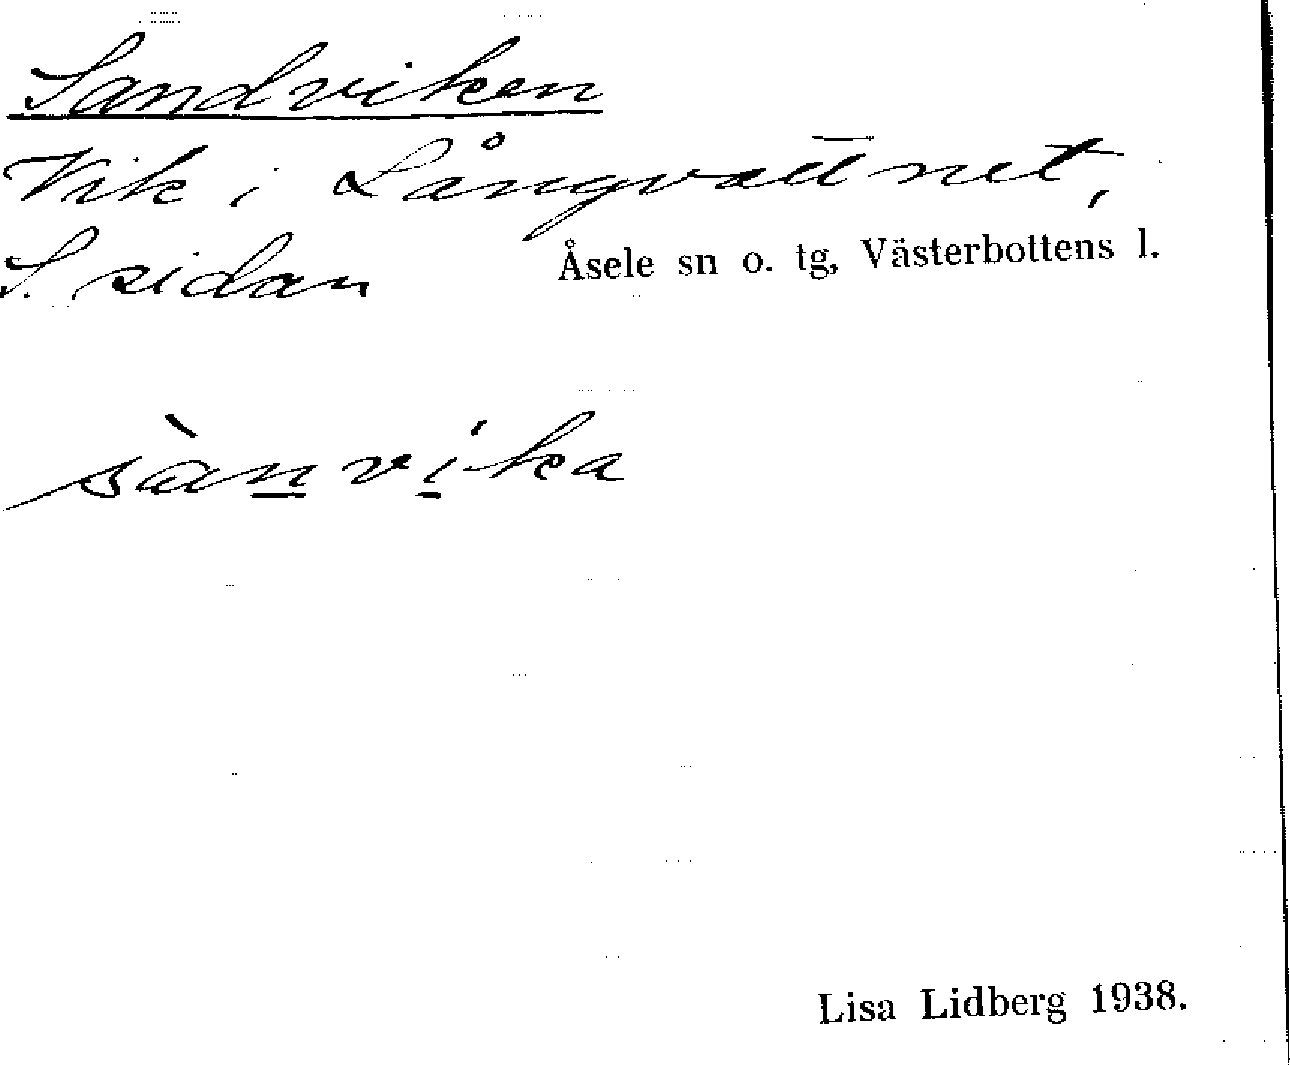 Sandviken
Vik i Långvattnet,
S. sidan
Åsele sn o. tg, Västerbottens l.
sàn̲vi̲ka
Lisa Lidberg 1938.